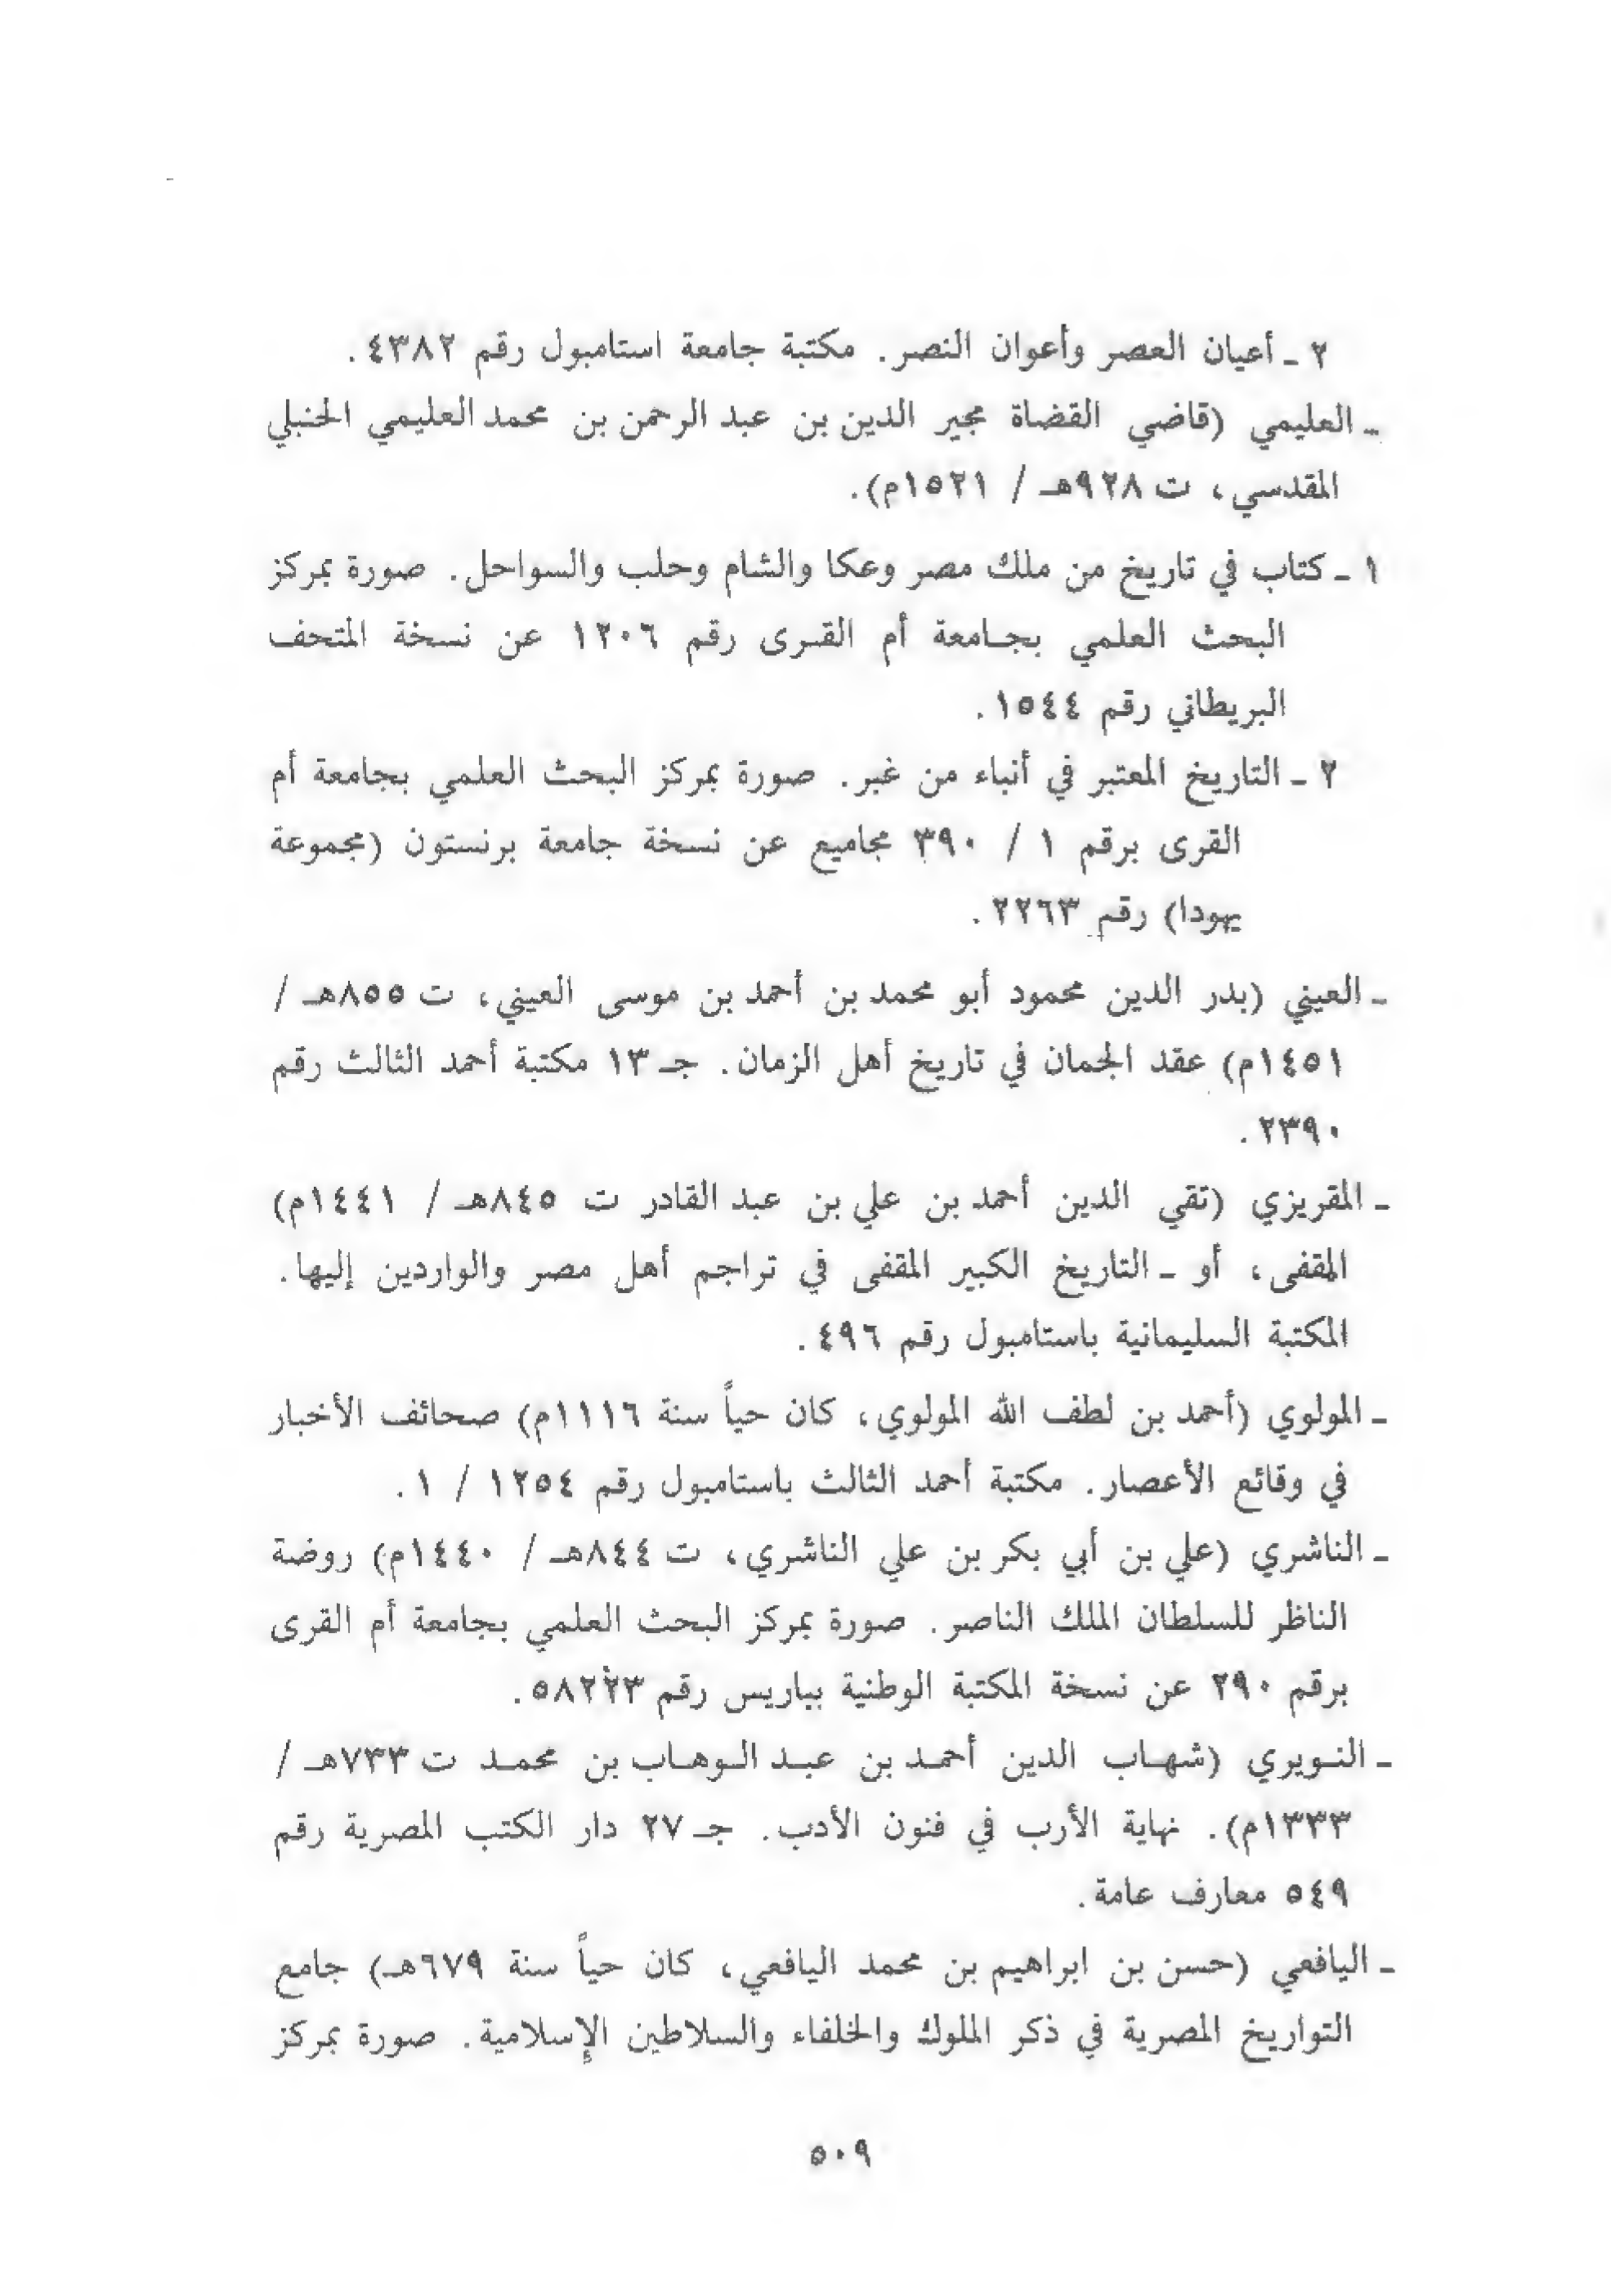 ٢ ـ أعيان العصر وأعوان النصر. مكتبة جامعة استامبول رقم ٤٣٨٢.
ـ العليمي (قاضي القضاة مجير الدين بن عبد الرحمن بن محمد العليمي الحنبلي
المقدسي، ت ٩٢٨هـ / ١٥٢١م).
١ ـ كتاب في تاريخ من ملك مصر وعكا والشام وحلب والسواحل. صورة بمركز
البحث العلمي بجامعة أم القرى رقم ١٢٠٦ عن نسخة المتحف
البريطاني رقم ١٥٤٤.
٢ ـ التاريخ المعتبر في أنباء من غبر. صورة بمركز البحث العلمي بجامعة أم
القرى برقم ١ / ٣٩٠ مجاميع عن نسخة جامعة برنستون (مجموعة
يهودا) رقم ٢٢٦٣.
ـ العيني (بدر الدين محمود أبو محمد بن أحمد بن موسى العيني، ت ٨٥٥هـ /
١٤٥١م) عقد الجمان في تاريخ أهل الزمان. جـ ١٣ مكتبة أحمد الثالث رقم
٢٣٩٠.
ـ المقريزي (تقي الدين أحمد بن علي بن عبد القادر ت ٨٤٥هـ / ١٤٤١م)
المقفى، أو ـ التاريخ الكبير المقفى في تراجم أهل مصر والواردين إليها.
المكتبة السليمانية باستامبول رقم ٤٩٦.
ـ المولوي (أحمد بن لطف الله المولوي، كان حياً سنة ١١١٦م) صحائف الأخبار
في وقائع الأعصار. مكتبة أحمد الثالث باستامبول رقم ١٢٥٤ / ١.
ـ الناشري (علي بن أبي بكر بن علي الناشري، ت ٨٤٤هـ / ١٤٤٠م) روضة
الناظر للسلطان الملك الناصر. صورة بمركز البحث العلمي بجامعة أم القرى
برقم ٢٩٠ عن نسخة المكتبة الوطنية بباريس رقم ٥٨٢٢٣.
ـ النويري (شهاب الدين أحمد بن عبد الوهاب بن محمد ت ٧٣٣هـ /
١٣٣٣م). نهاية الأرب في فنون الأدب. جـ ٢٧ دار الكتب المصرية رقم
٥٤٩ معارف عامة.
ـ اليافعي (حسن بن ابراهيم بن محمد اليافعي، كان حياً سنة ٦٧٩هـ) جامع
التواريخ المصرية في ذكر الملوك والخلفاء والسلاطين الإسلامية. صورة بمركز
٥٠٩